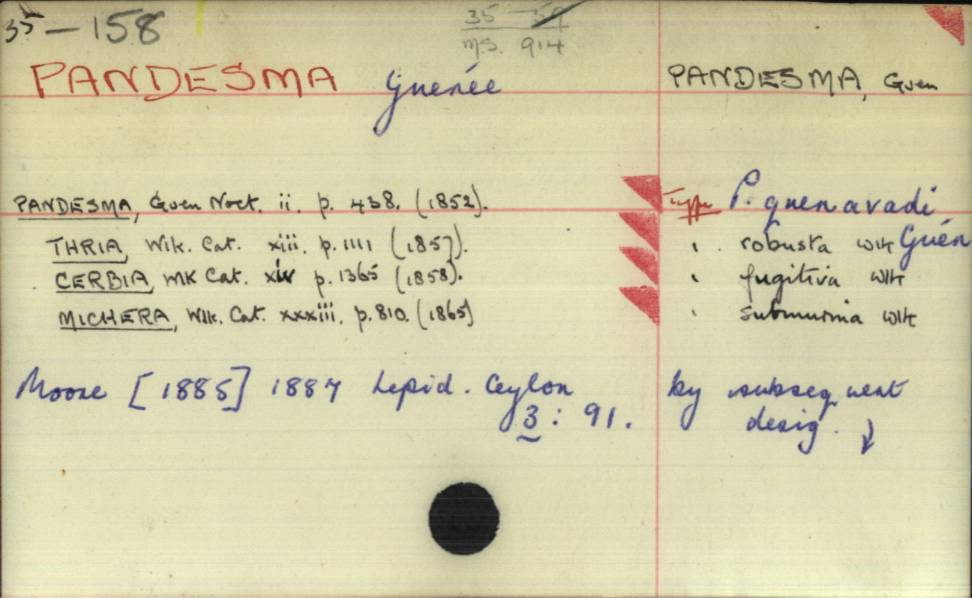 35-158
35-59
M.S. 914
PANDESMA Guenée
PANDESMA, Guen
PANDESMA, Guen Noct. ii. p. 438. (1852). Type P. quenavadi Guén
THRIA, Wlk. Cat. xiii. p. 1111 (1857). " robusta Wlk
CERBIA, Wlk Cat. xiv p. 1365 (1858). " fugitiva Wlk
MICHERA, Wlk. Cat. xxxiii. p. 810. (1865) " submurina Wlk
Moore [1885] 1887 Lepid. Ceylon by subsequent
3: 91. desig. ↓